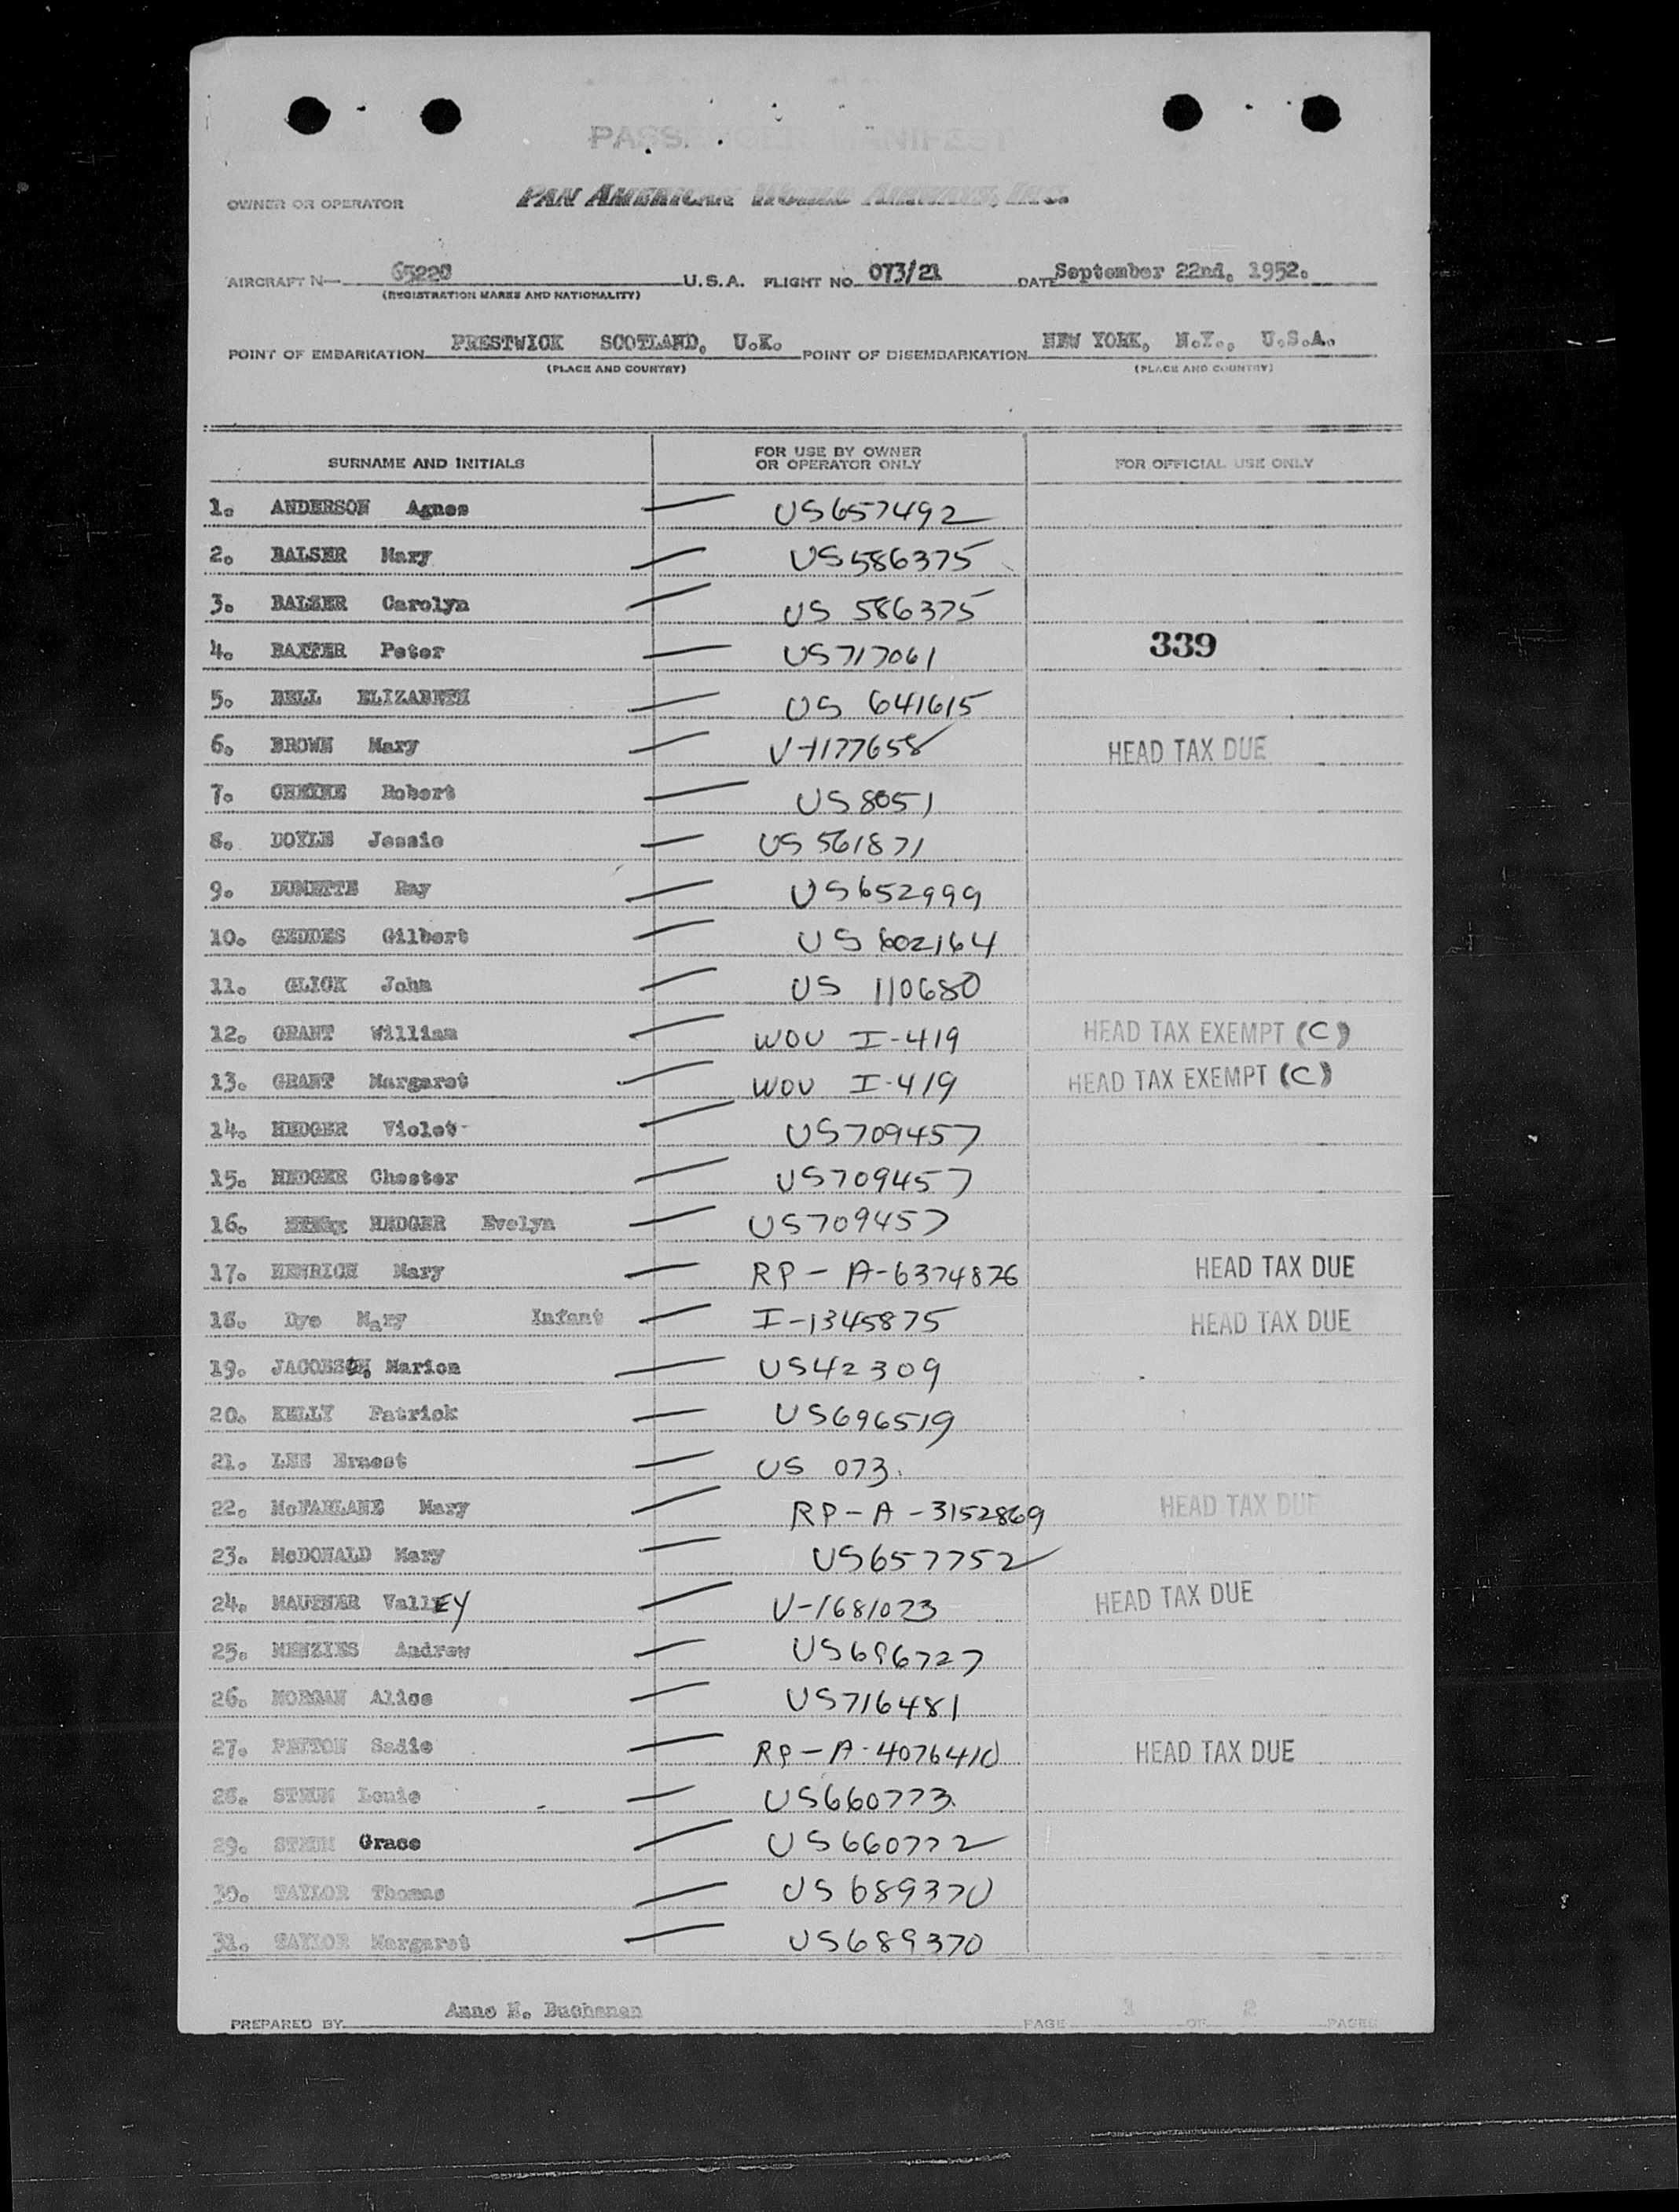 PASSENGER MANIFEST
OWNER OR OPERATOR PAN AMERICAN WORLD AIRWAYS, INC.
AIRCRAFT N— 65220 U.S.A. FLIGHT NO. 073/21 DATE September 22nd, 1952.
(REGISTRATION MARKS AND NATIONALITY)
POINT OF EMBARKATION PRESTWICK SCOTLAND, U.K. POINT OF DISEMBARKATION NEW YORK, N.Y., U.S.A.
(PLACE AND COUNTRY) (PLACE AND COUNTRY)
SURNAME AND INITIALS FOR USE BY OWNER OR OPERATOR ONLY FOR OFFICIAL USE ONLY
1. ANDERSON Agnes — US657492
2. BALSER Mary — US586375
3. BALSER Carolyn — US 586375
4. BAXTER Peter — US717061 339
5. BELL ELIZABETH — US 641615
6. BROWN Mary — V-1177658 HEAD TAX DUE
7. Robert — US8051
8. DOYLE Jessie — US 561871
9. DUMETTE Ray — US652999
10. GEDDES Gilbert — US 602164
11. GLICK John — US 110680
12. GRANT William — WOU I-419 HEAD TAX EXEMPT (C)
13. GRANT Margaret — WOU I-419 HEAD TAX EXEMPT (C)
14. HEDGER Violet — US709457
15. HEDGER Chester — US709457
16. HEDGER Evelyn — US709457
17. HENRICH Mary — RP-A-6374826 HEAD TAX DUE
18. Dye Mary Infant — I-1345875 HEAD TAX DUE
19. JACOBSON, Marion — US42309
20. KELLY Patrick — US696519
21. LEE Ernest — US 073.
22. McFARLANE Mary — RP-A-3152869 HEAD TAX DUE
23. McDONALD Mary — US657752
24. MAUTNER VallEY — V-1681023 HEAD TAX DUE
25. MENZIES Andrew — US696727
26. MORGAN Alice — US716481
27. PEYTON Sadie — RP-A-4076410 HEAD TAX DUE
28. Louie — US660773
29. Grace — US660772
30. TAYLOR Thomas — US689370
31. TAYLOR Margaret — US689370
PREPARED BY Anne H. Buchanan PAGE OF 2 PAGES